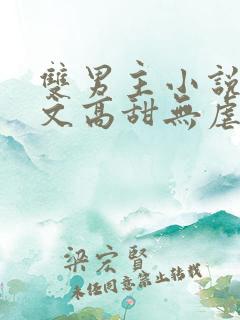 雙男主小說
文高甜無虐
梁宏賢
未經同意禁止轉載